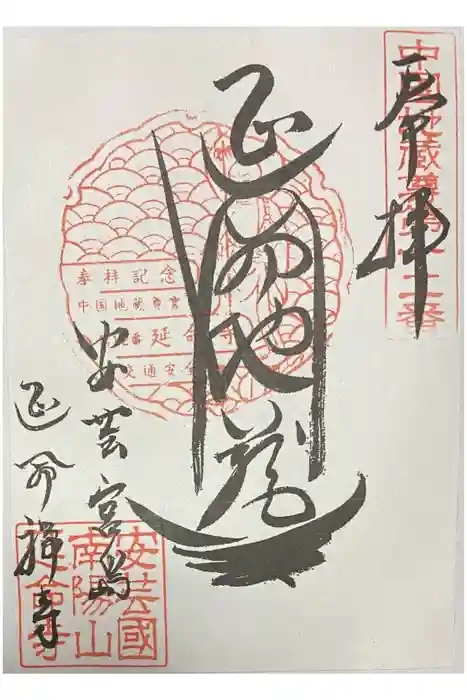 奉拝
中国地蔵尊第十二番
延命地蔵
奉拝記念
中国地蔵尊霊
番 延命寺
交通安全
安芸宮島
延命禅寺
安芸國
南陽山
延命寺